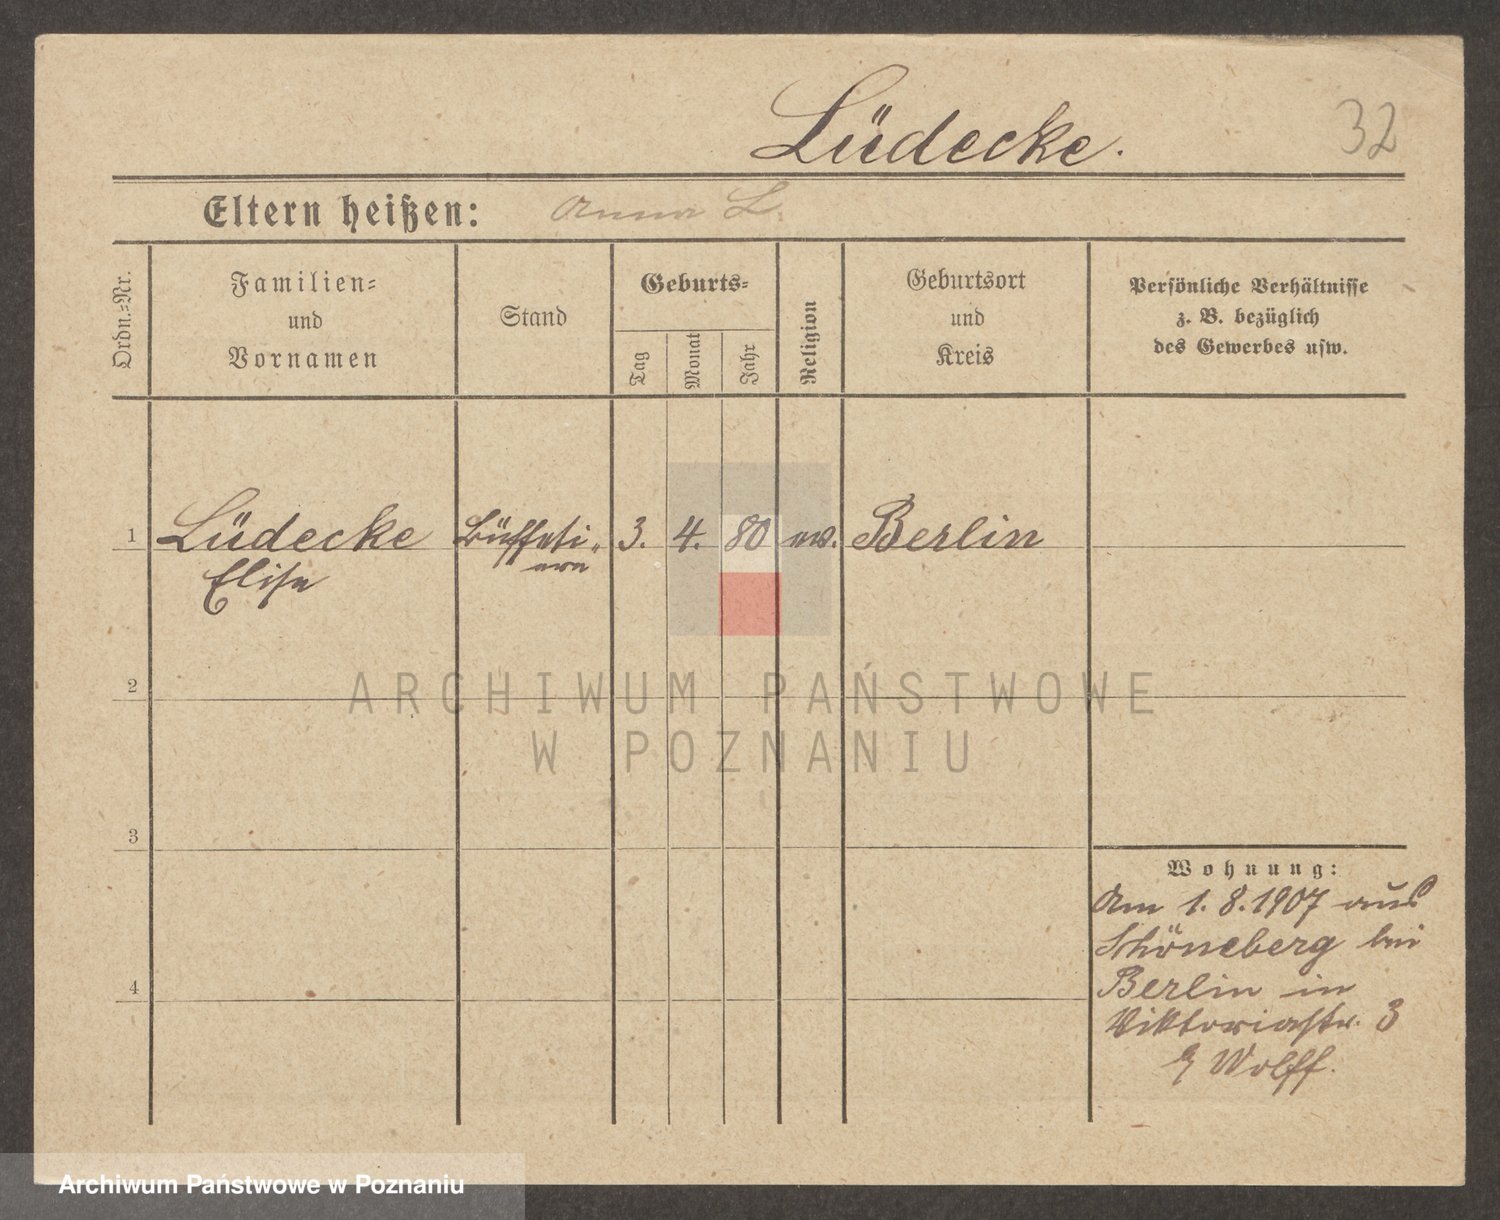 Lüdecke.
32
Eltern heißen: Anna L
Ordn.-Nr.
Familien-
und
Vornamen
Stand
Geburts-
Tag
Monat
Jahr
Religion
Geburtsort
und
Kreis
Persönliche Verhältnisse
z. B. bezüglich
des Gewerbes usw.
1 Lüdecke Büffeti- 3. 4. 80 ev. Berlin
Elise ere
2
ARCHIWUM PAŃSTWOWE
W POZNANIU
3
Wohnung:
Am 1. 8. 1907 aus
Schöneberg bei
4
Berlin in
Viktoriastr. 3
Wolff.
Archiwum Państwowe w Poznaniu